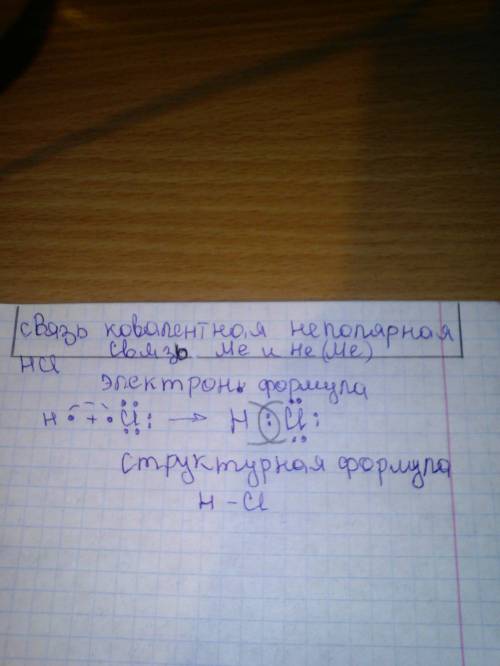 связь ковалентная неполярная
связь Me и не(Me)
HCl
электронь формула
H • + • Cl : → H : Cl :
структурная формула
H – Cl